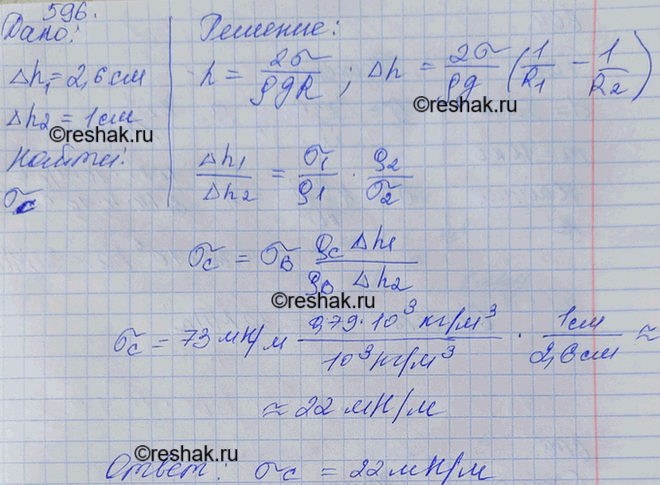 596.
Дано:
Δh₁ = 2,6 см
Δh₂ = 1 см
Найти:
σc
Решение:
h = 2σ / ρgR ; Δh = 2σ / ρg (1/R₁ − 1/R₂)
Δh₁ / Δh₂ = σ₁ / ρ₁ · ρ₂ / σ₂
σc = σв ρc Δh₁ / ρв Δh₂
σc = 73 мН/м 0,79·10³ кг/м³ / 10³ кг/м³ · 1 см / 2,6 см ≈
≈ 22 мН/м
Ответ: σc = 22 мН/м
©reshak.ru
©reshak.ru
©reshak.ru
©reshak.ru
©reshak.ru